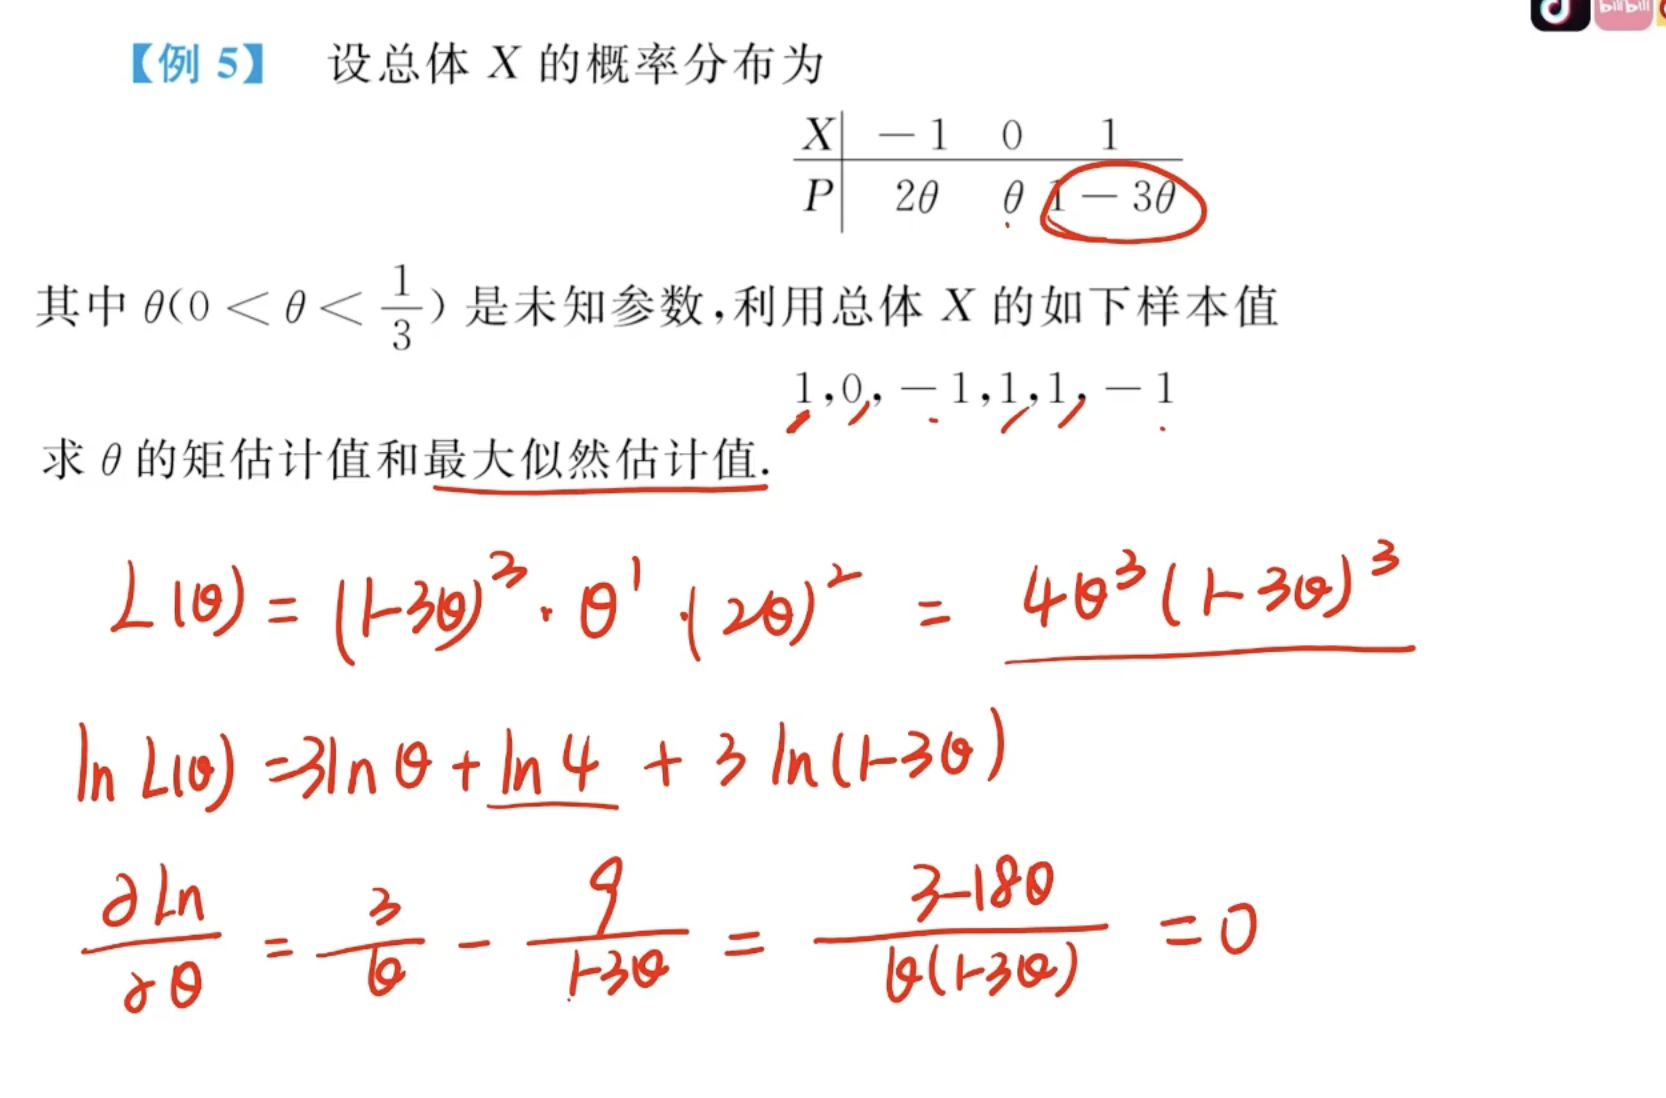 bilibili
【例 5】 设总体 X 的概率分布为
X -1 0 1
P 2θ θ 1-3θ
其中 θ(0 < θ < 1/3) 是未知参数,利用总体 X 的如下样本值
1,0,-1,1,1,-1
求 θ 的矩估计值和最大似然估计值.
L(θ) = (1-3θ)³ · θ¹ · (2θ)² = 4θ³(1-3θ)³
ln L(θ) = 3ln θ + ln 4 + 3 ln(1-3θ)
∂Ln/∂θ = 3/θ - 9/(1-3θ) = 3-18θ/θ(1-3θ) = 0